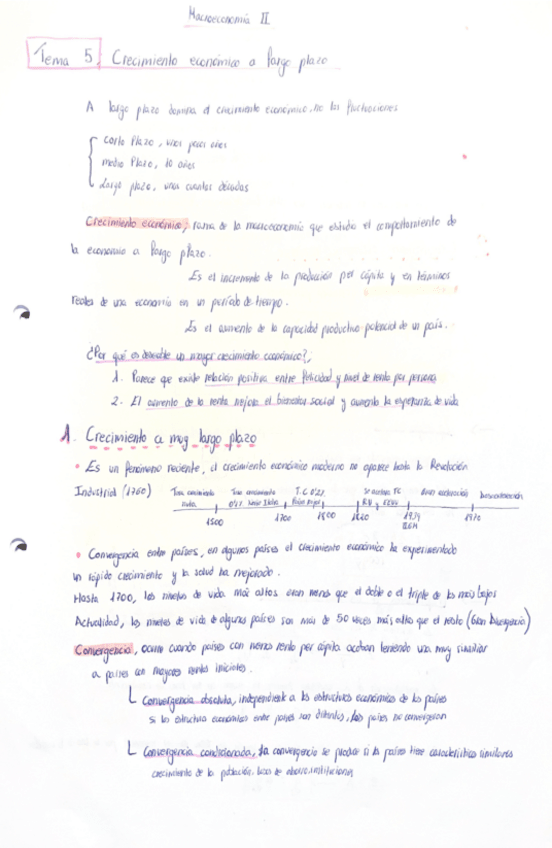 Macroeconomía II
Tema 5, Crecimiento económico a largo plazo
A largo plazo domina el crecimiento económico, no las fluctuaciones
corto Plazo, unos pocos años
medio Plazo, 10 años
Largo plazo, unas cuantas décadas
Crecimiento económico, rama de la macroeconomía que estudia el comportamiento de
la economía a largo plazo.
Es el incremento de la producción per cápita y en términos
reales de una economía en un período de tiempo.
Es el aumento de la capacidad productiva potencial de un país.
¿Por qué es deseable un mayor crecimiento económico?,
1. Parece que existe relación positiva entre felicidad y nivel de renta por persona
2. El aumento de la renta mejora el bienestar social y aumenta la esperanza de vida
1. Crecimiento a muy largo plazo
• Es un fenómeno reciente, el crecimiento económico moderno no aparece hasta la Revolución
Industrial (1760)
Tasa crecimiento Tasa crecimiento T.C 0'2% Gran aceleración Desaceleración
1500 1700 1800 1820 1914 1970
• Convergencia entre países, en algunos países el crecimiento económico ha experimentado
un rápido crecimiento y la salud ha mejorado.
Hasta 1700, los niveles de vida más altos eran menos que el doble o el triple de los más bajos
Actualidad, los niveles de vida de algunos países son más de 50 veces más alto que el resto (Gran Divergencia)
Convergencia, ocurre cuando países con menos renta per cápita acaban teniendo una muy similar
a países con mayores rentas iniciales.
Convergencia absoluta, independiente a las estructuras económicas de los países
Si las estructura económicas entre países son distintas, los países no convergerán
Convergencia condicionada, la convergencia se produce si los países tiene características similares
crecimiento de la población, tasas de ahorro, instituciones